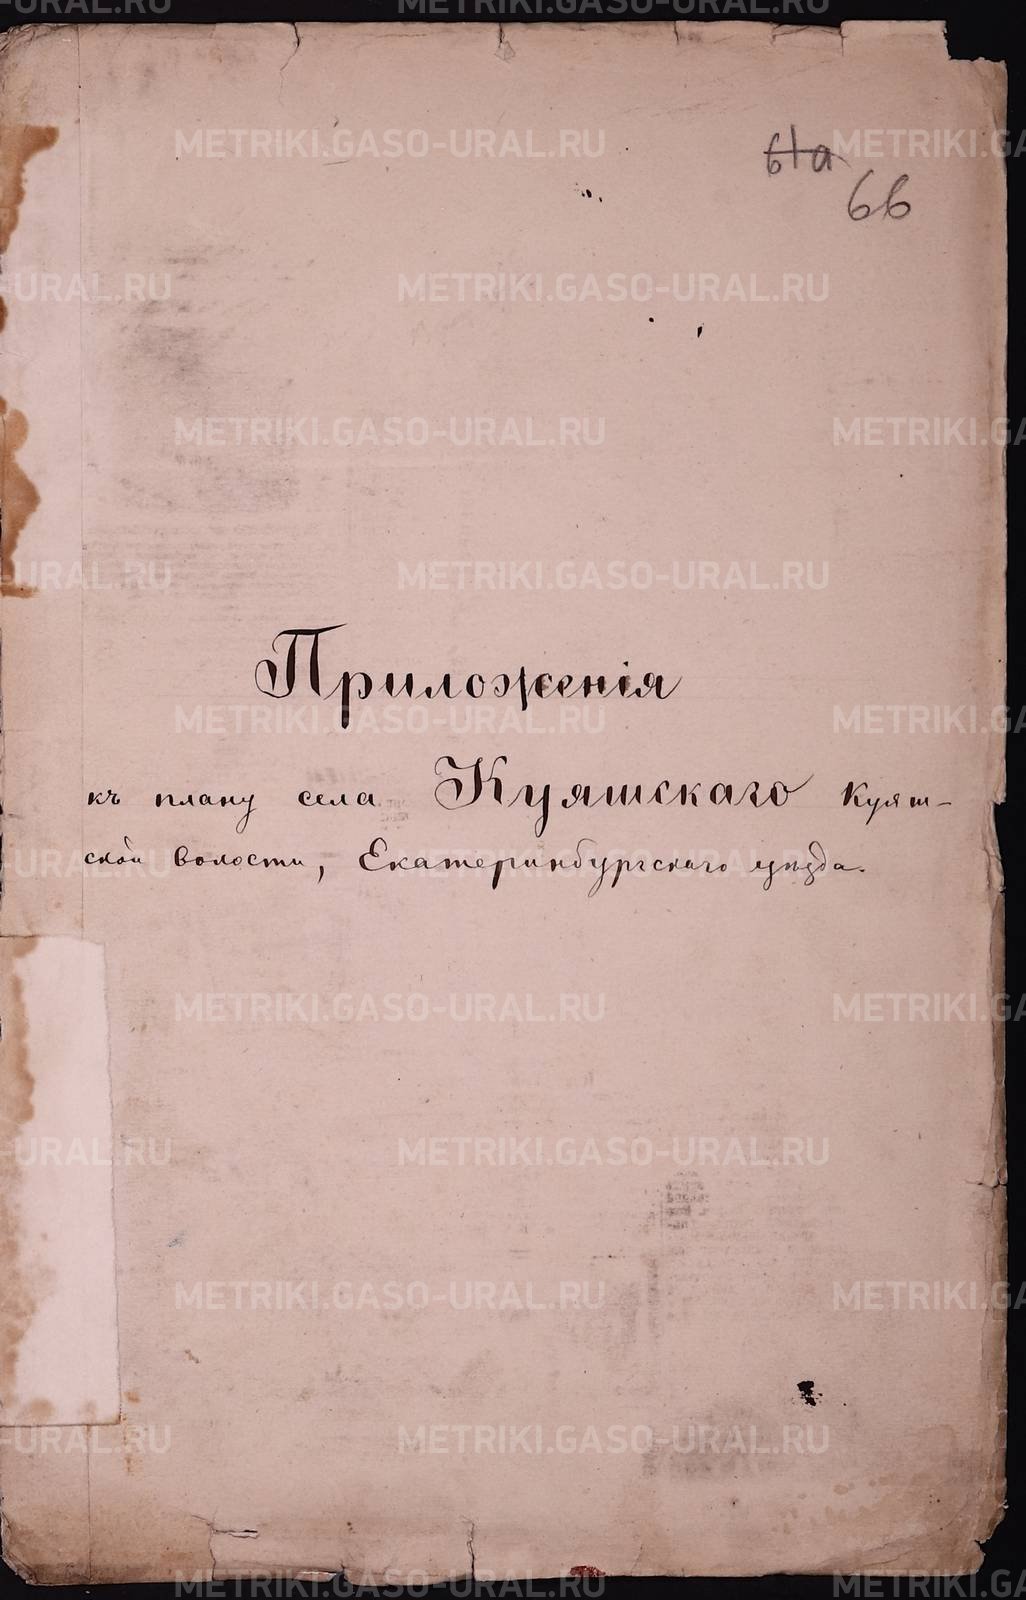 61а
66
Приложенія
къ плану села Куяшскаго Куяш-
ской волости, Екатеринбургскаго уѣзда.
METRIKI.GASO-URAL.RU